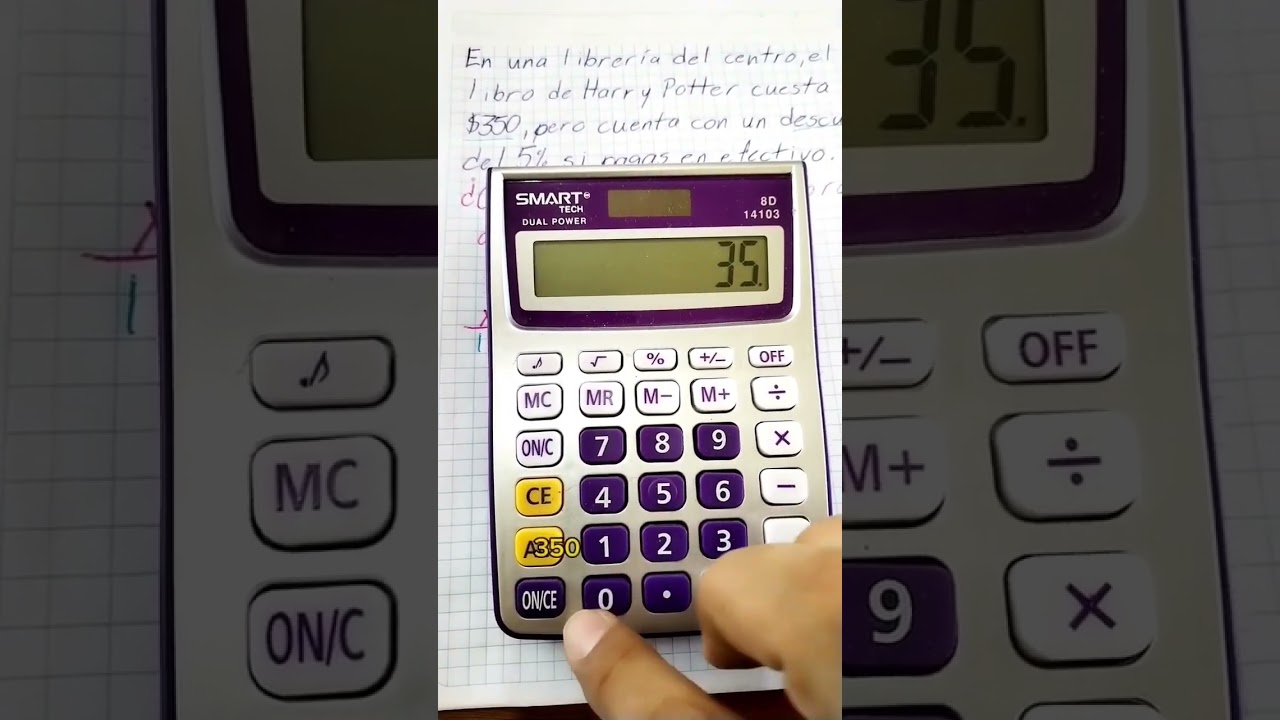 En una librería del centro, el
libro de Harry Potter cuesta
$350, pero cuenta con un descu
del 5% si pagas en efectivo.
SMART
TECH
DUAL POWER
8D
14103
35.
√ % +/− OFF
MC MR M− M+ ÷
ON/C 7 8 9 ×
CE 4 5 6 −
350 1 2 3
ON/CE 0 .
35.
+/− OFF
MC M+ ÷
ON/C 9 ×